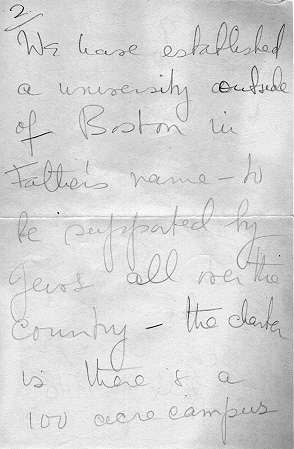 2.
We have established
a university outside
of Boston in
Father's name – to
be supported by
Jews all over the
country – the charter
is there & a
100 acre campus